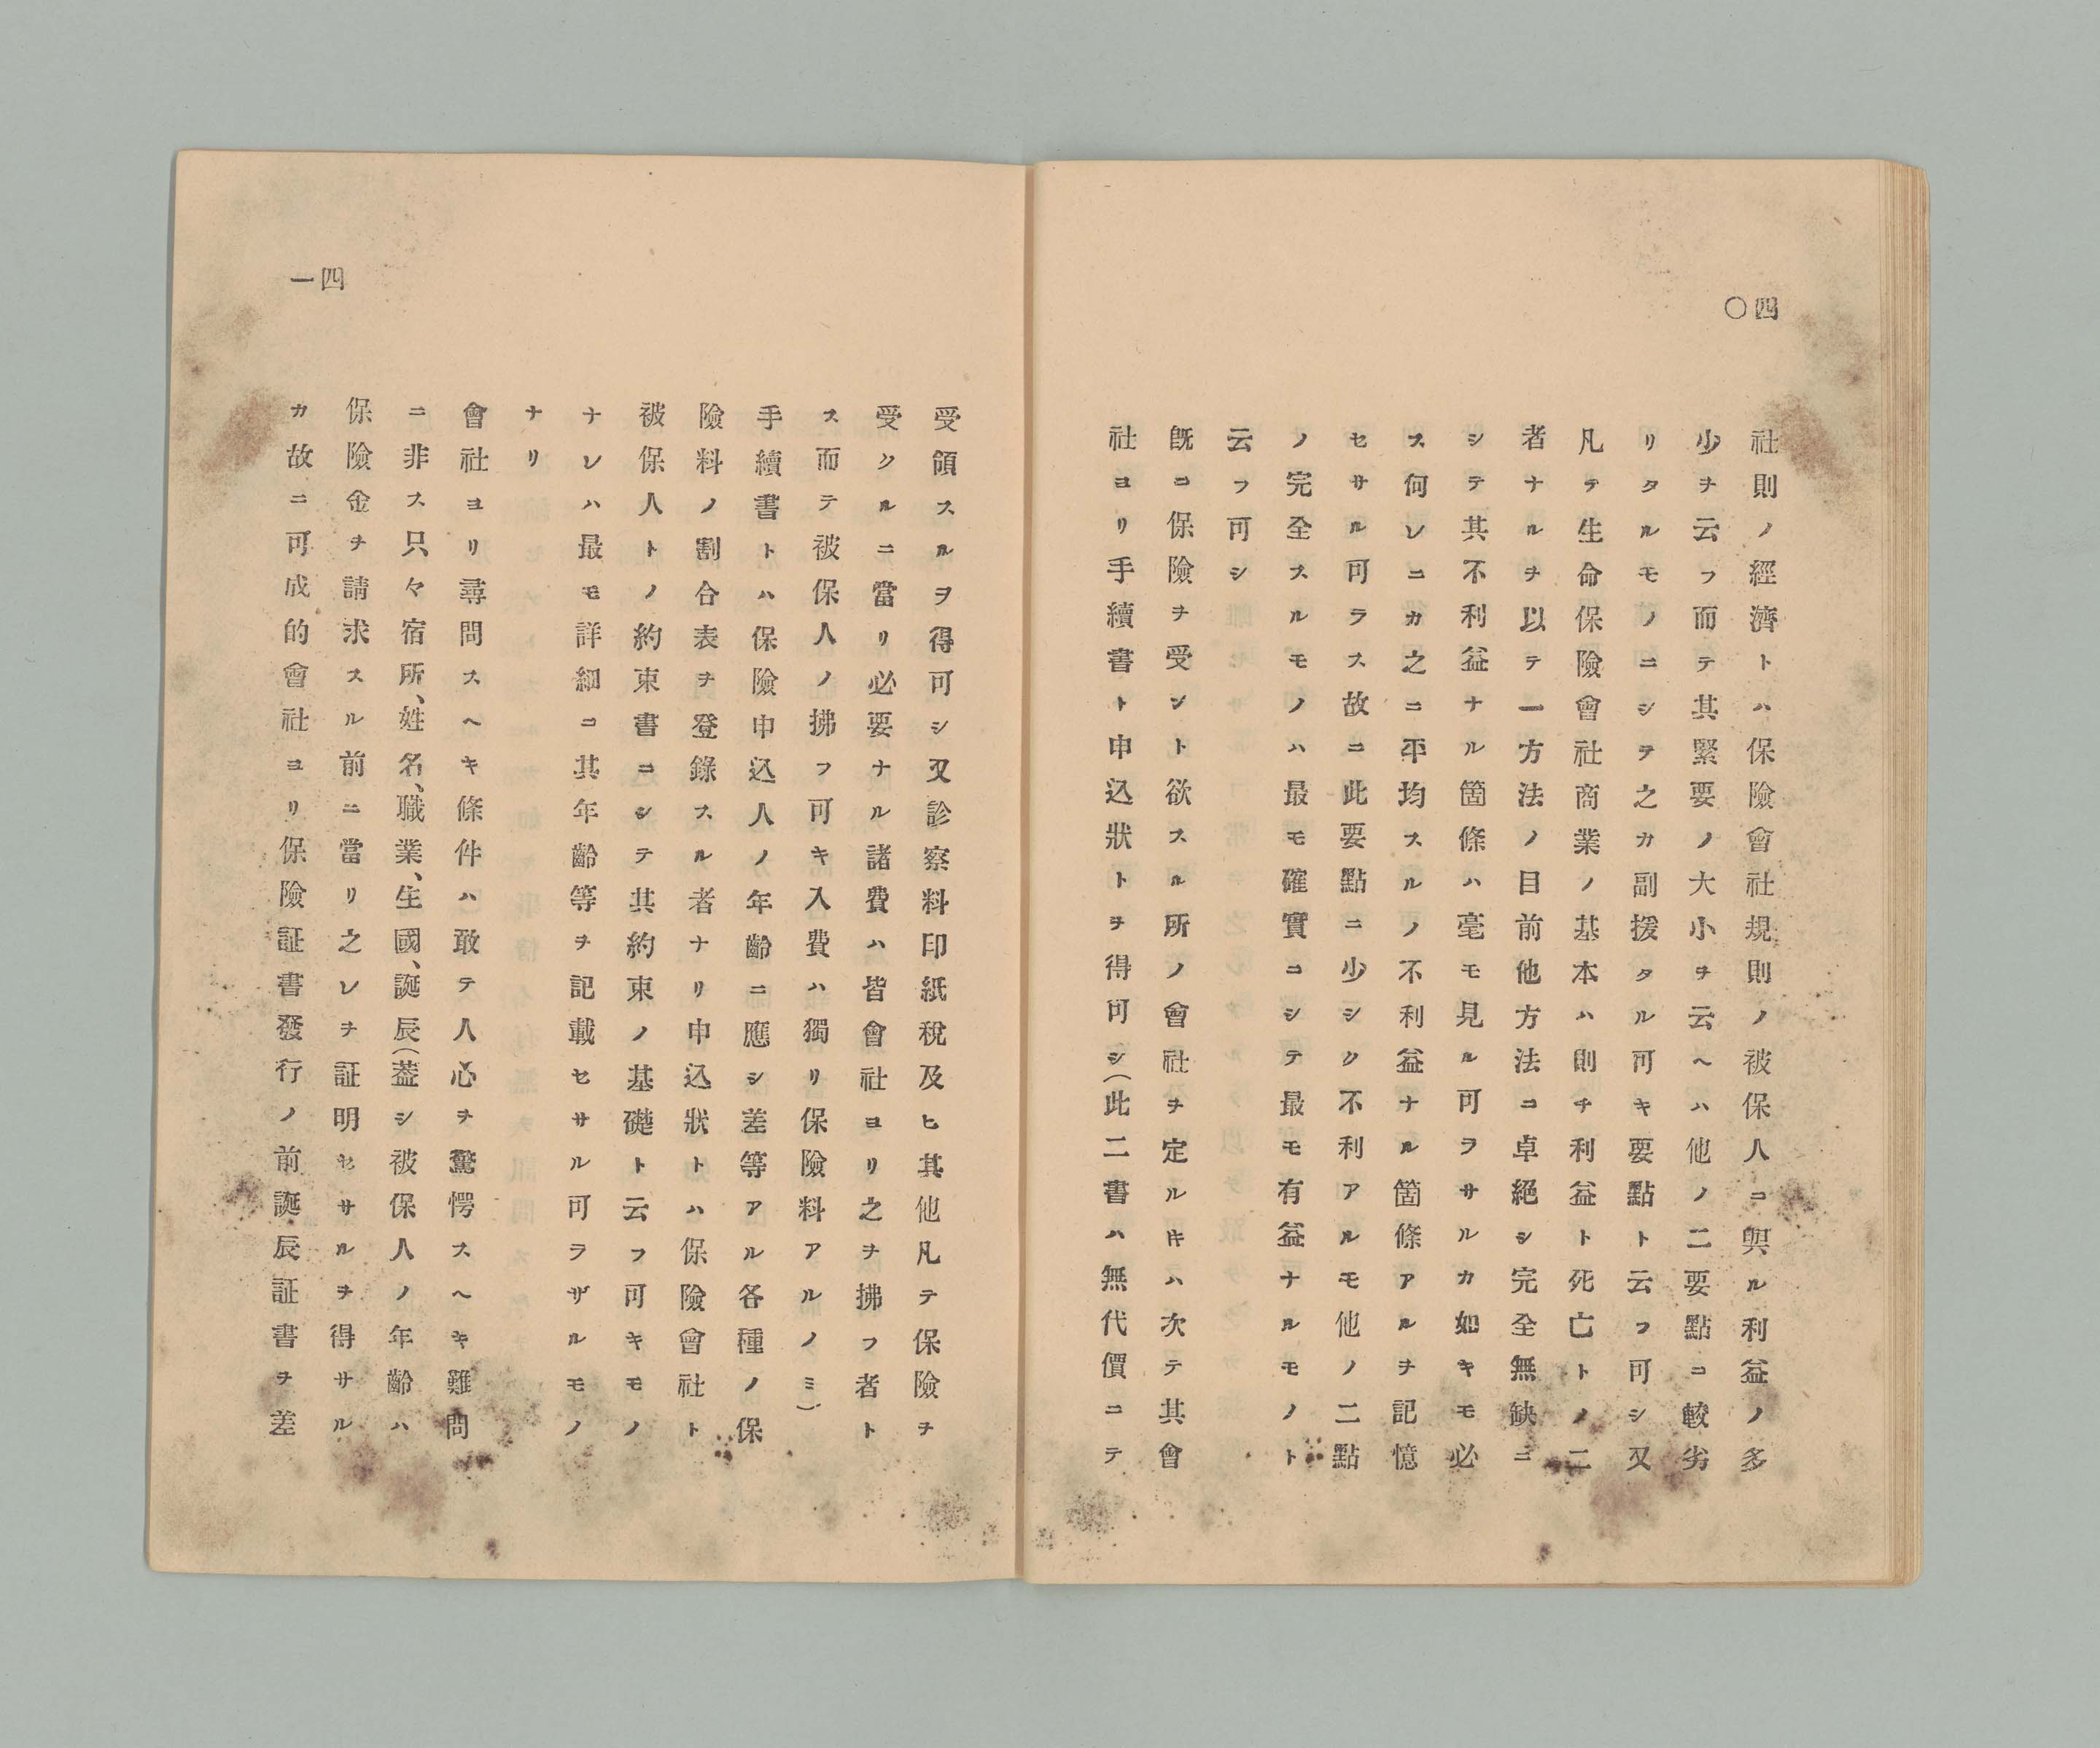 四〇
社則ノ經濟トハ保險會社規則ノ被保人ニ與ル利益ノ多
少ヲ云フ而テ其緊要ノ大小ヲ云ヘハ他ノ二要點ニ較劣
リタルモノニシテ之カ副援タル可キ要點ト云フ可シ又
凡テ生命保險會社商業ノ基本ハ則チ利益ト死亡トノ二
者ナルヲ以テ一方法ノ目前他方法ニ卓絕シ完全無缺ニ
シテ其不利益ナル箇條ハ毫モ見ル可ヲサルカ如キモ必
ス何レニカ之ニ平均スルノ不利益ナル箇條アルヲ記憶
セサル可ラス故ニ此要點ニ少シク不利アルモ他ノ二點
ノ完全スルモノハ最モ確實ニシテ最モ有益ナルモノト
云フ可シ
既ニ保險ヲ受ント欲スル所ノ會社ヲ定ルキハ次テ其會
社ヨリ手續書ト申込狀トヲ得可シ(此二書ハ無代價ニテ
四一
受領スルヲ得可シ又診察料印紙稅及ヒ其他凡テ保險ヲ
受クルニ當リ必要ナル諸費ハ皆會社ヨリ之ヲ拂フ者ト
ス而テ被保人ノ拂フ可キ入費ハ獨リ保險料アルノミ)
手續書トハ保險申込人ノ年齡ニ應シ差等アル各種ノ保
險料ノ割合表ヲ登錄スル者ナリ申込狀トハ保險會社ト
被保人トノ約束書ニシテ其約束ノ基礎ト云フ可キモノ
ナレハ最モ詳細ニ其年齡等ヲ記載セサル可ラザルモノ
ナリ
會社ヨリ尋問スヘキ條件ハ敢テ人心ヲ驚愕スヘキ難問
ニ非ス只々宿所、姓名、職業、生國、誕辰(葢シ被保人ノ年齡ハ
保險金ヲ請求スル前ニ當リ之レヲ証明セサルヲ得サル
カ故ニ可成的會社ヨリ保險証書發行ノ前誕辰証書ヲ差